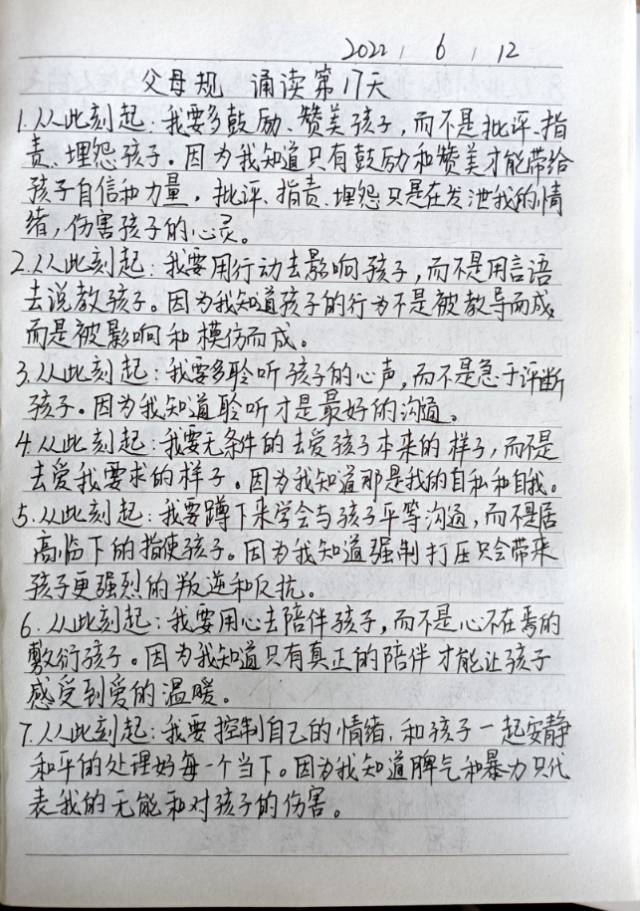 2022 / 6 / 12
父母规 诵读第17天
1.从此刻起:我要多鼓励、赞美孩子,而不是批评、指
责、埋怨孩子。因为我知道只有鼓励和赞美才能带给
孩子自信和力量,批评、指责、埋怨只是在发泄我的情
绪,伤害孩子的心灵。
2.从此刻起:我要用行动去影响孩子,而不是用言语
去说教孩子。因为我知道孩子的行为不是被教导而成,
而是被影响和模仿而成。
3.从此刻起:我要多聆听孩子的心声,而不是急于评断
孩子。因为我知道聆听才是最好的沟通。
4.从此刻起:我要无条件的去爱孩子本来的样子,而不是
去爱我要求的样子。因为我知道那是我的自私和自我。
5.从此刻起:我要蹲下来学会与孩子平等沟通,而不是居
高临下的指使孩子。因为我知道强制打压只会带来
孩子更强烈的叛逆和反抗。
6.从此刻起:我要用心去陪伴孩子,而不是心不在焉的
敷衍孩子。因为我知道只有真正的陪伴才能让孩子
感受到爱的温暖。
7.从此刻起:我要控制自己的情绪,和孩子一起安静
和平的处理好每一个当下。因为我知道脾气和暴力只代
表我的无能和对孩子的伤害。